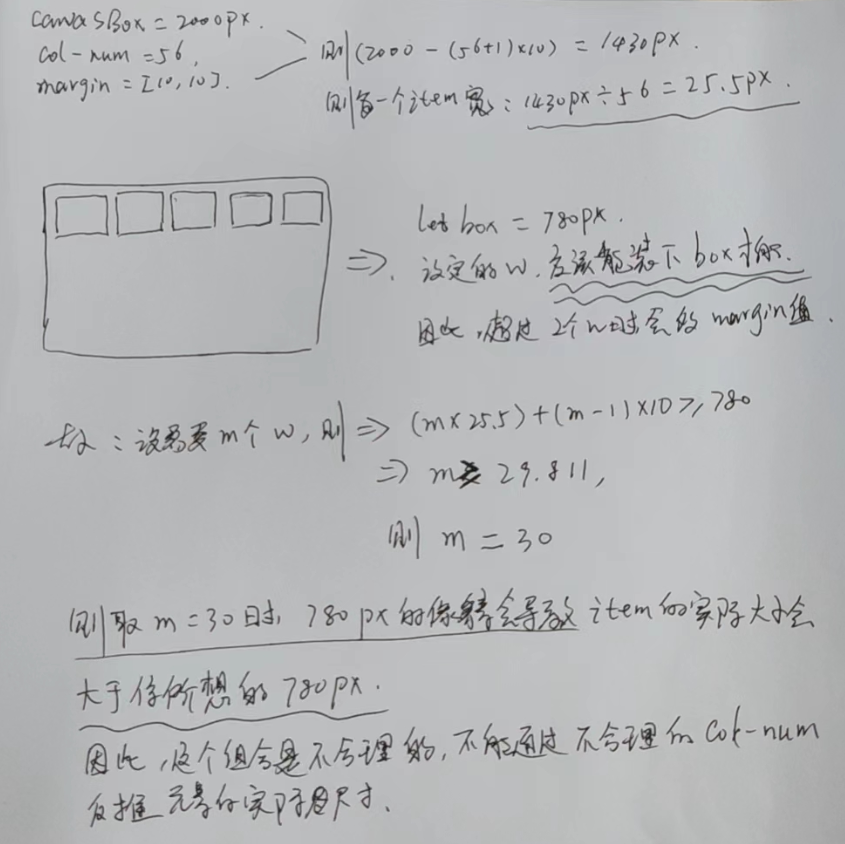 canvasBox = 2000px.
col-num = 56,
margin = [10, 10].
则(2000 - (56+1)×10) = 1430px.
则每一个item宽: 1430px÷56 = 25.5px.
let box = 780px.
⇒. 设定的 w, 应该能装下 box才能.
因此, 超过 2个w时会的 margin值.
故: 设需要 m个 w, 则 ⇒ (m×25.5)+(m-1)×10 ≥ 780
⇒ m ≥ 29.811,
则 m = 30
则取 m=30时, 780px的会导致 item的实际大小会
大于你所想的 780px.
因此, 这个组合是不合理的, 不能通过不合理的 Col-num
反推元素的实际尺寸.